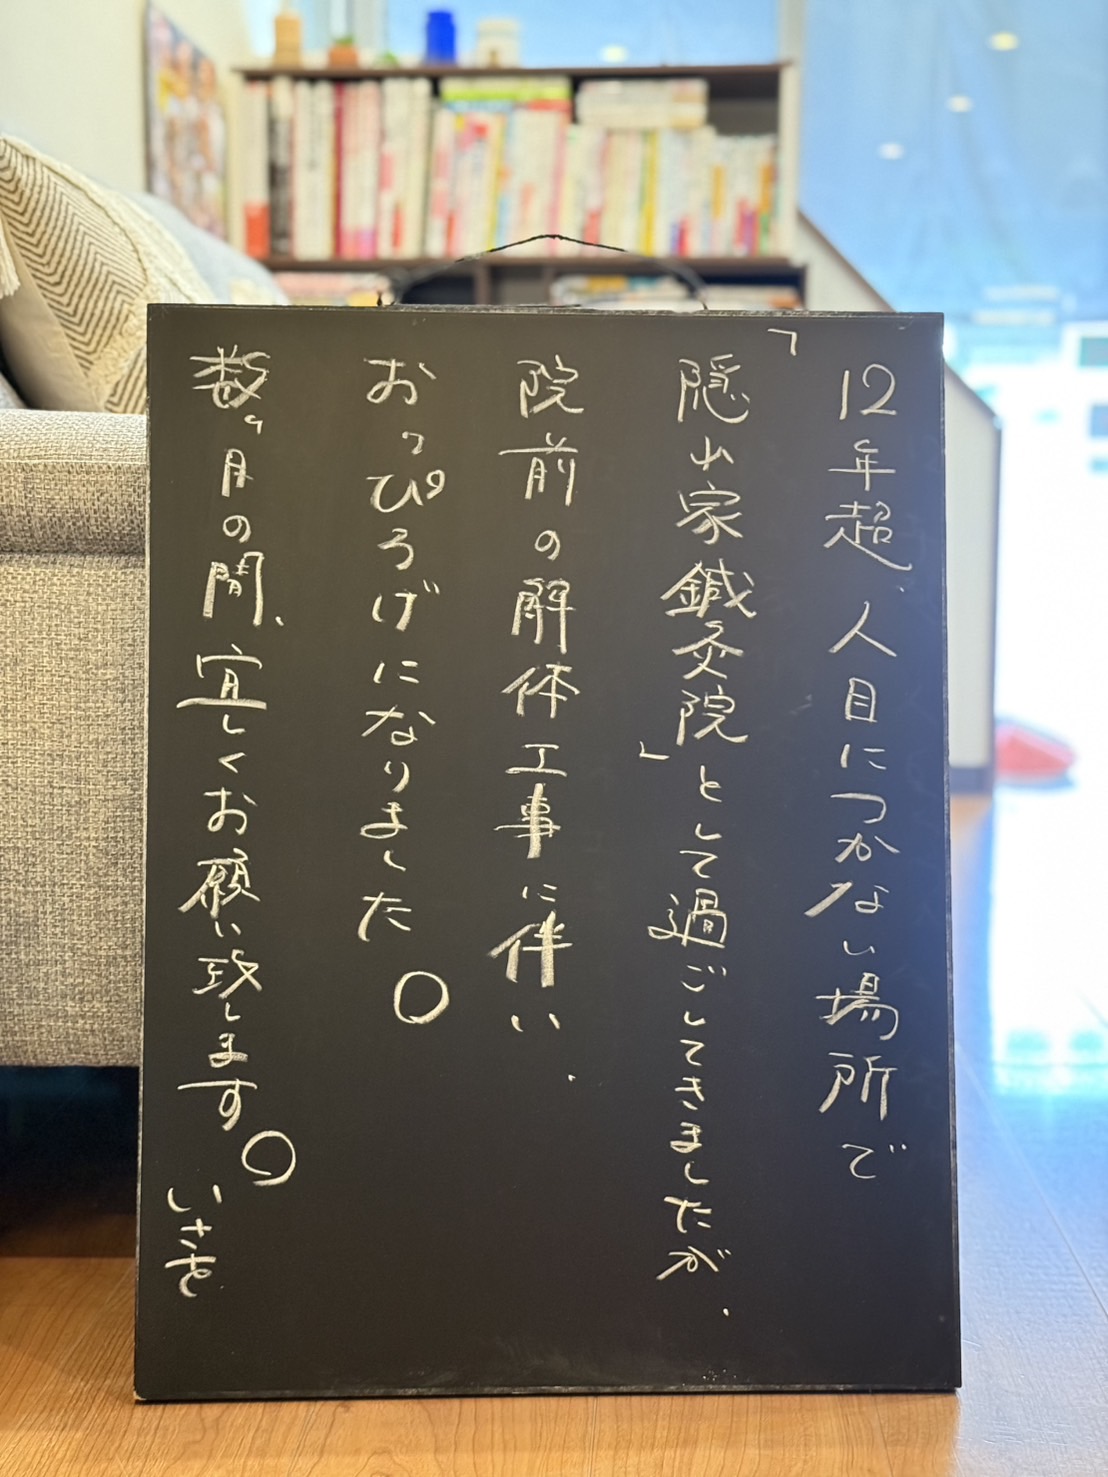 12年超、人目につかない場所で
「隠れ家鍼灸院」として過ごしてきましたが、
院前の解体工事に伴い、
おっぴろげになりました。
数ヶ月の間、宜しくお願い致します。